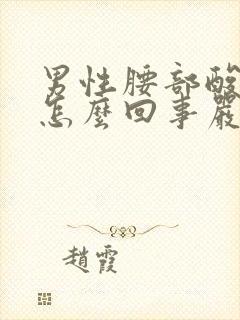 男性腰部酸
怎麼回事嚴
趙霞